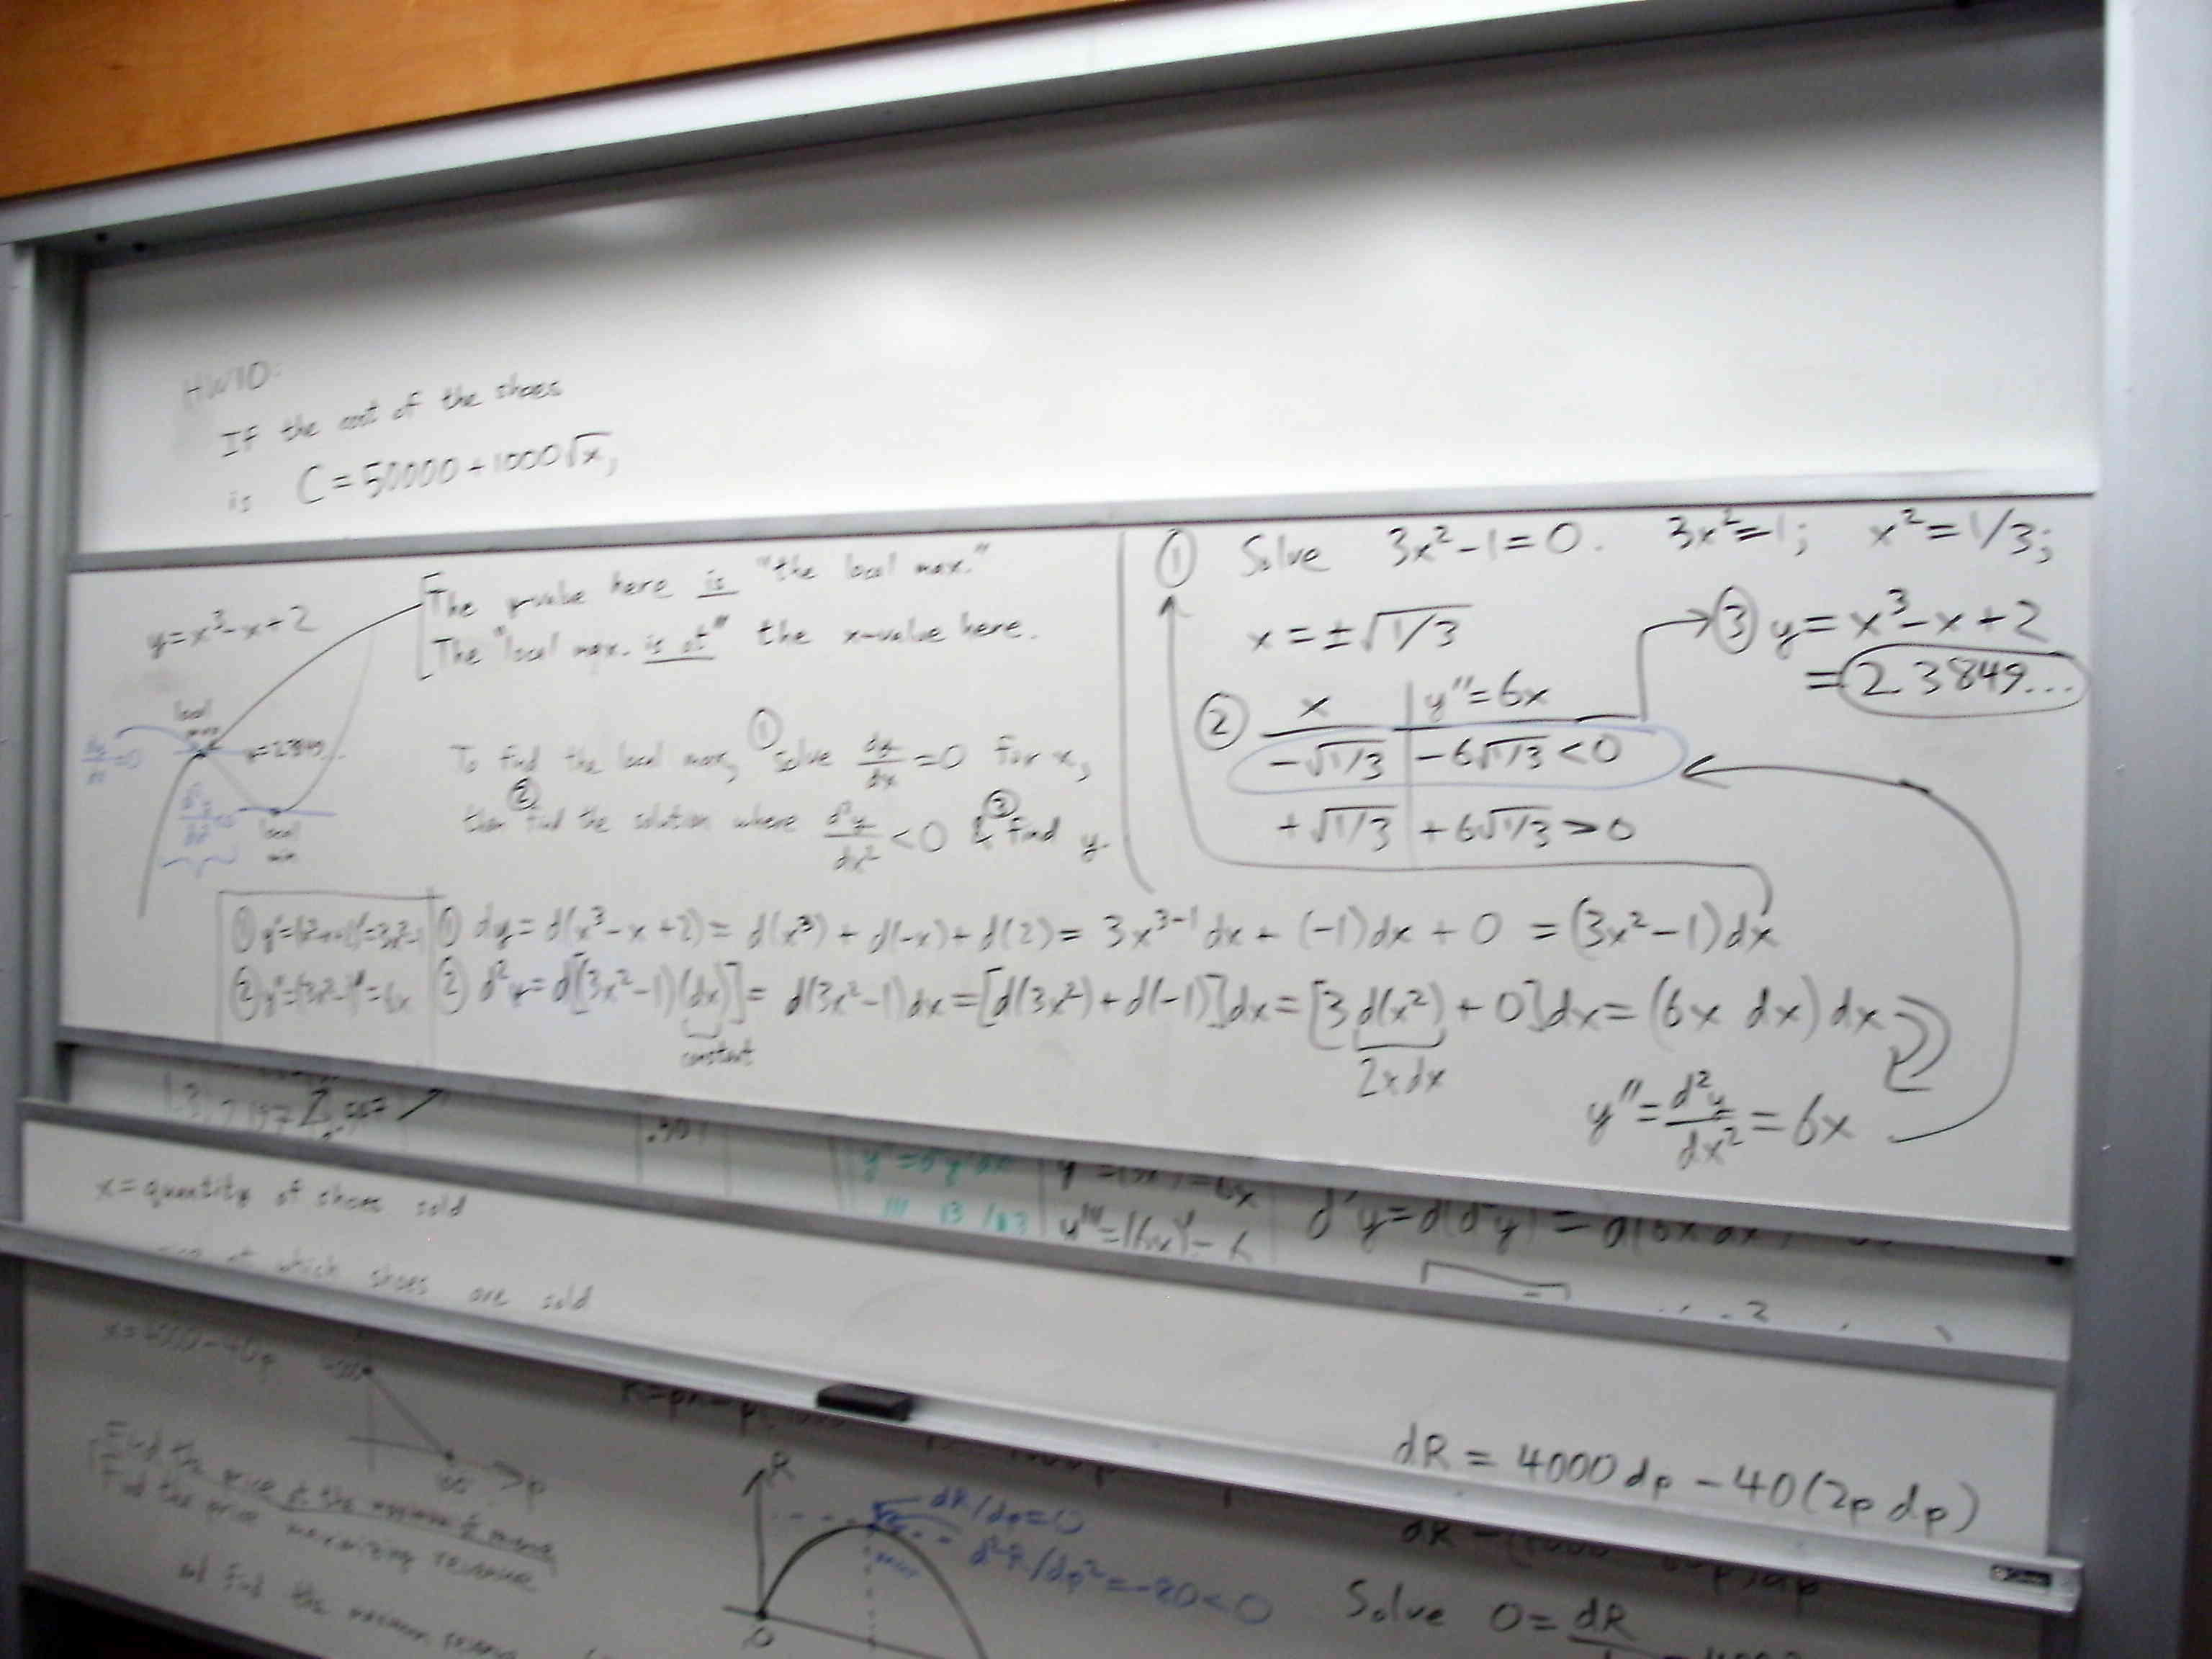 HW10:
If the cost of the shoes
is C = 50000 + 1000√x,
y = x³ - x + 2
local
max
y=2.3849...
local
min
The y-value here is "the local max."
The "local max. is at" the x-value here.
To find the local max, ① solve dy/dx = 0 for x,
then ② find the solution where d²y/dx² < 0 & ③ find y.
① Solve 3x² - 1 = 0. 3x² = 1; x² = 1/3;
x = ±√1/3
② x | y'' = 6x
-√1/3 | -6√1/3 < 0
+√1/3 | +6√1/3 > 0
③ y = x³ - x + 2
= 2.3849...
① y' = (x³-x+2)' = 3x²-1
② y'' = (3x²-1)' = 6x
① dy = d(x³ - x + 2) = d(x³) + d(-x) + d(2) = 3x³⁻¹ dx + (-1)dx + 0 = (3x² - 1)dx
② d²y = d[(3x² - 1)(dx)] = d(3x² - 1)dx = [d(3x²) + d(-1)]dx = [3 d(x²) + 0]dx = (6x dx) dx
constant
2x dx
y'' = d²y/dx² = 6x
x = quantity of shoes sold
at which shoes are sold
x = 4000 - 40p
p
Find the price at the maximum of revenue
Find the price maximizing revenue
and find the maximum
R
dR/dp = 0
d²R/dp² = -80 < 0
0
dR = 4000 dp - 40(2p dp)
Solve 0 = dR